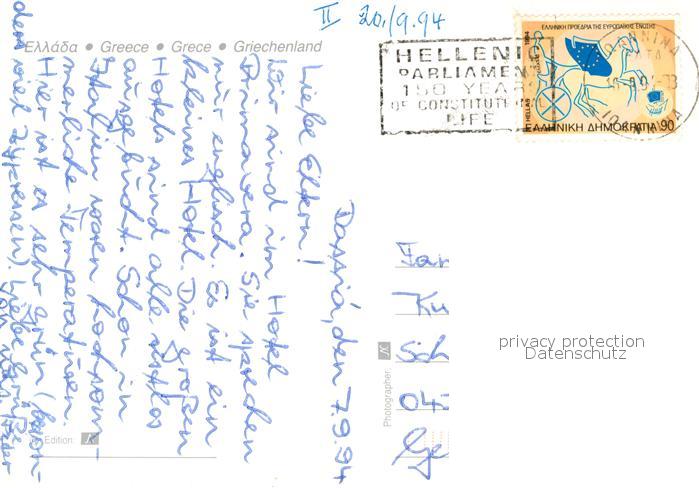 II 20./9.94
Ελλάδα • Greece • Grece • Griechenland
HELLENIC
PARLIAMENT
150 YEARS
OF CONSTITUTIONAL
LIFE
ΕΛΛΗΝΙΚΗ ΠΡΟΕΔΡΙΑ ΤΗΣ ΕΥΡΩΠΑΪΚΗΣ ΕΝΩΣΗΣ
1994
HELLAS
ΕΛΛΗΝΙΚΗ ΔΗΜΟΚΡΑΤΙΑ 90
IOANNINA
Parga, den 7.9.94
Liebe Eltern!
Wir sind im Hotel
Primavera. Sie sprechen
nur englisch. Es ist ein
kleines Hotel. Die großen
Hotels sind alle restlos
ausgebucht. Schon in
Italien waren hochsom-
merliche Temperaturen.
Hier ist es sehr grün
viel Zypressen). Liebe Grüße
Fam
Ku
Sch
04
Ge
Photographer:
Edition:
privacy protection
Datenschutz